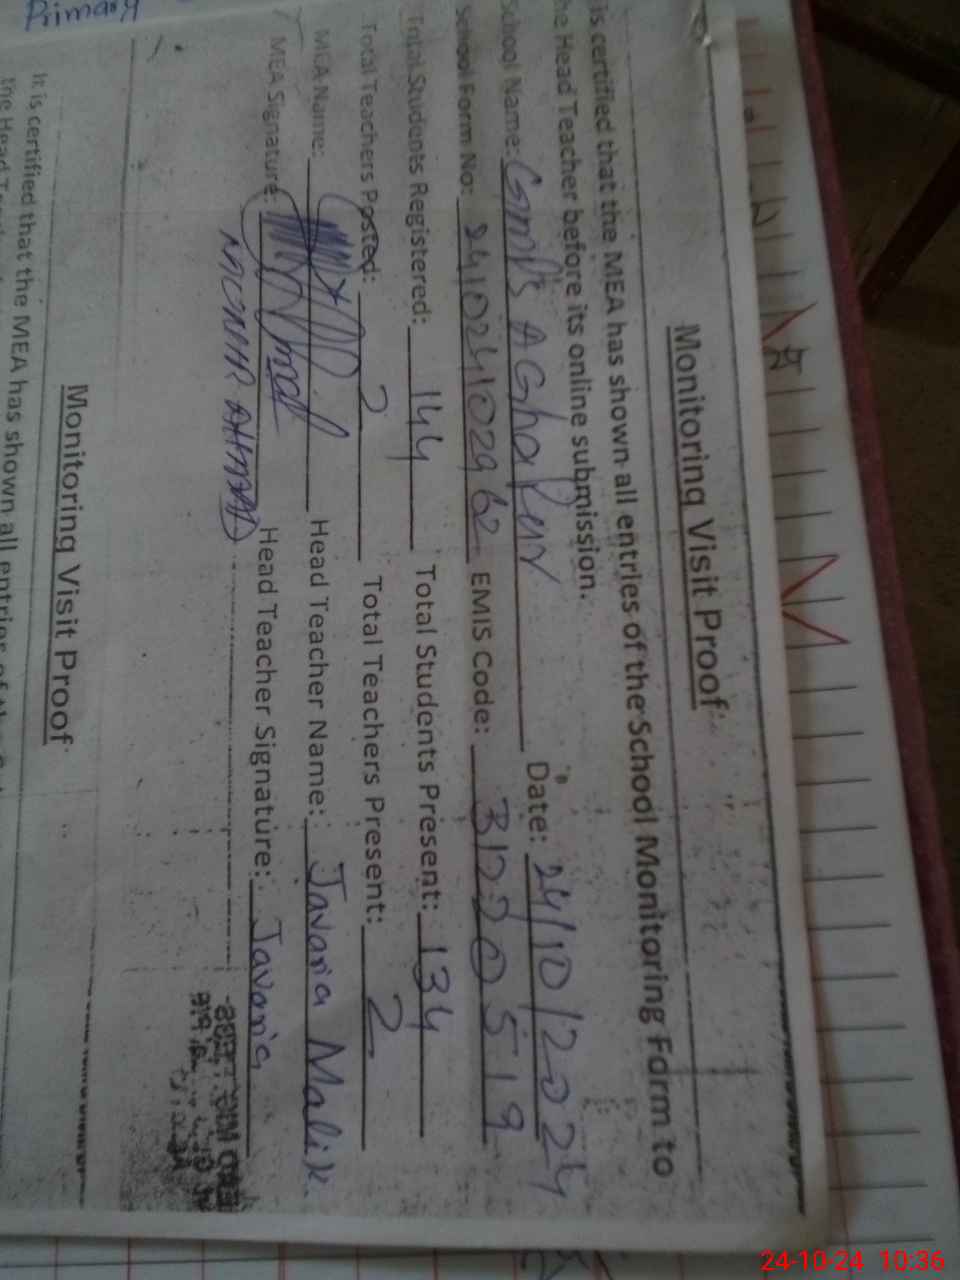 Primary
Monitoring Visit Proof
is certified that the MEA has shown all entries of the School Monitoring Form to
he Head Teacher before its online submission.
School Name: Date: 24/10/2024
School Form No: EMIS Code: 31220519
Total Students Registered: 144 Total Students Present: 134
Total Teachers Posted: 2 Total Teachers Present: 2
MEA Name: Head Teacher Name: Javaria Malik.
MEA Signature: Head Teacher Signature: Javaria
Monitoring Visit Proof
It is certified that the MEA has shown all entries of the
the Head
24-10-24 10:36